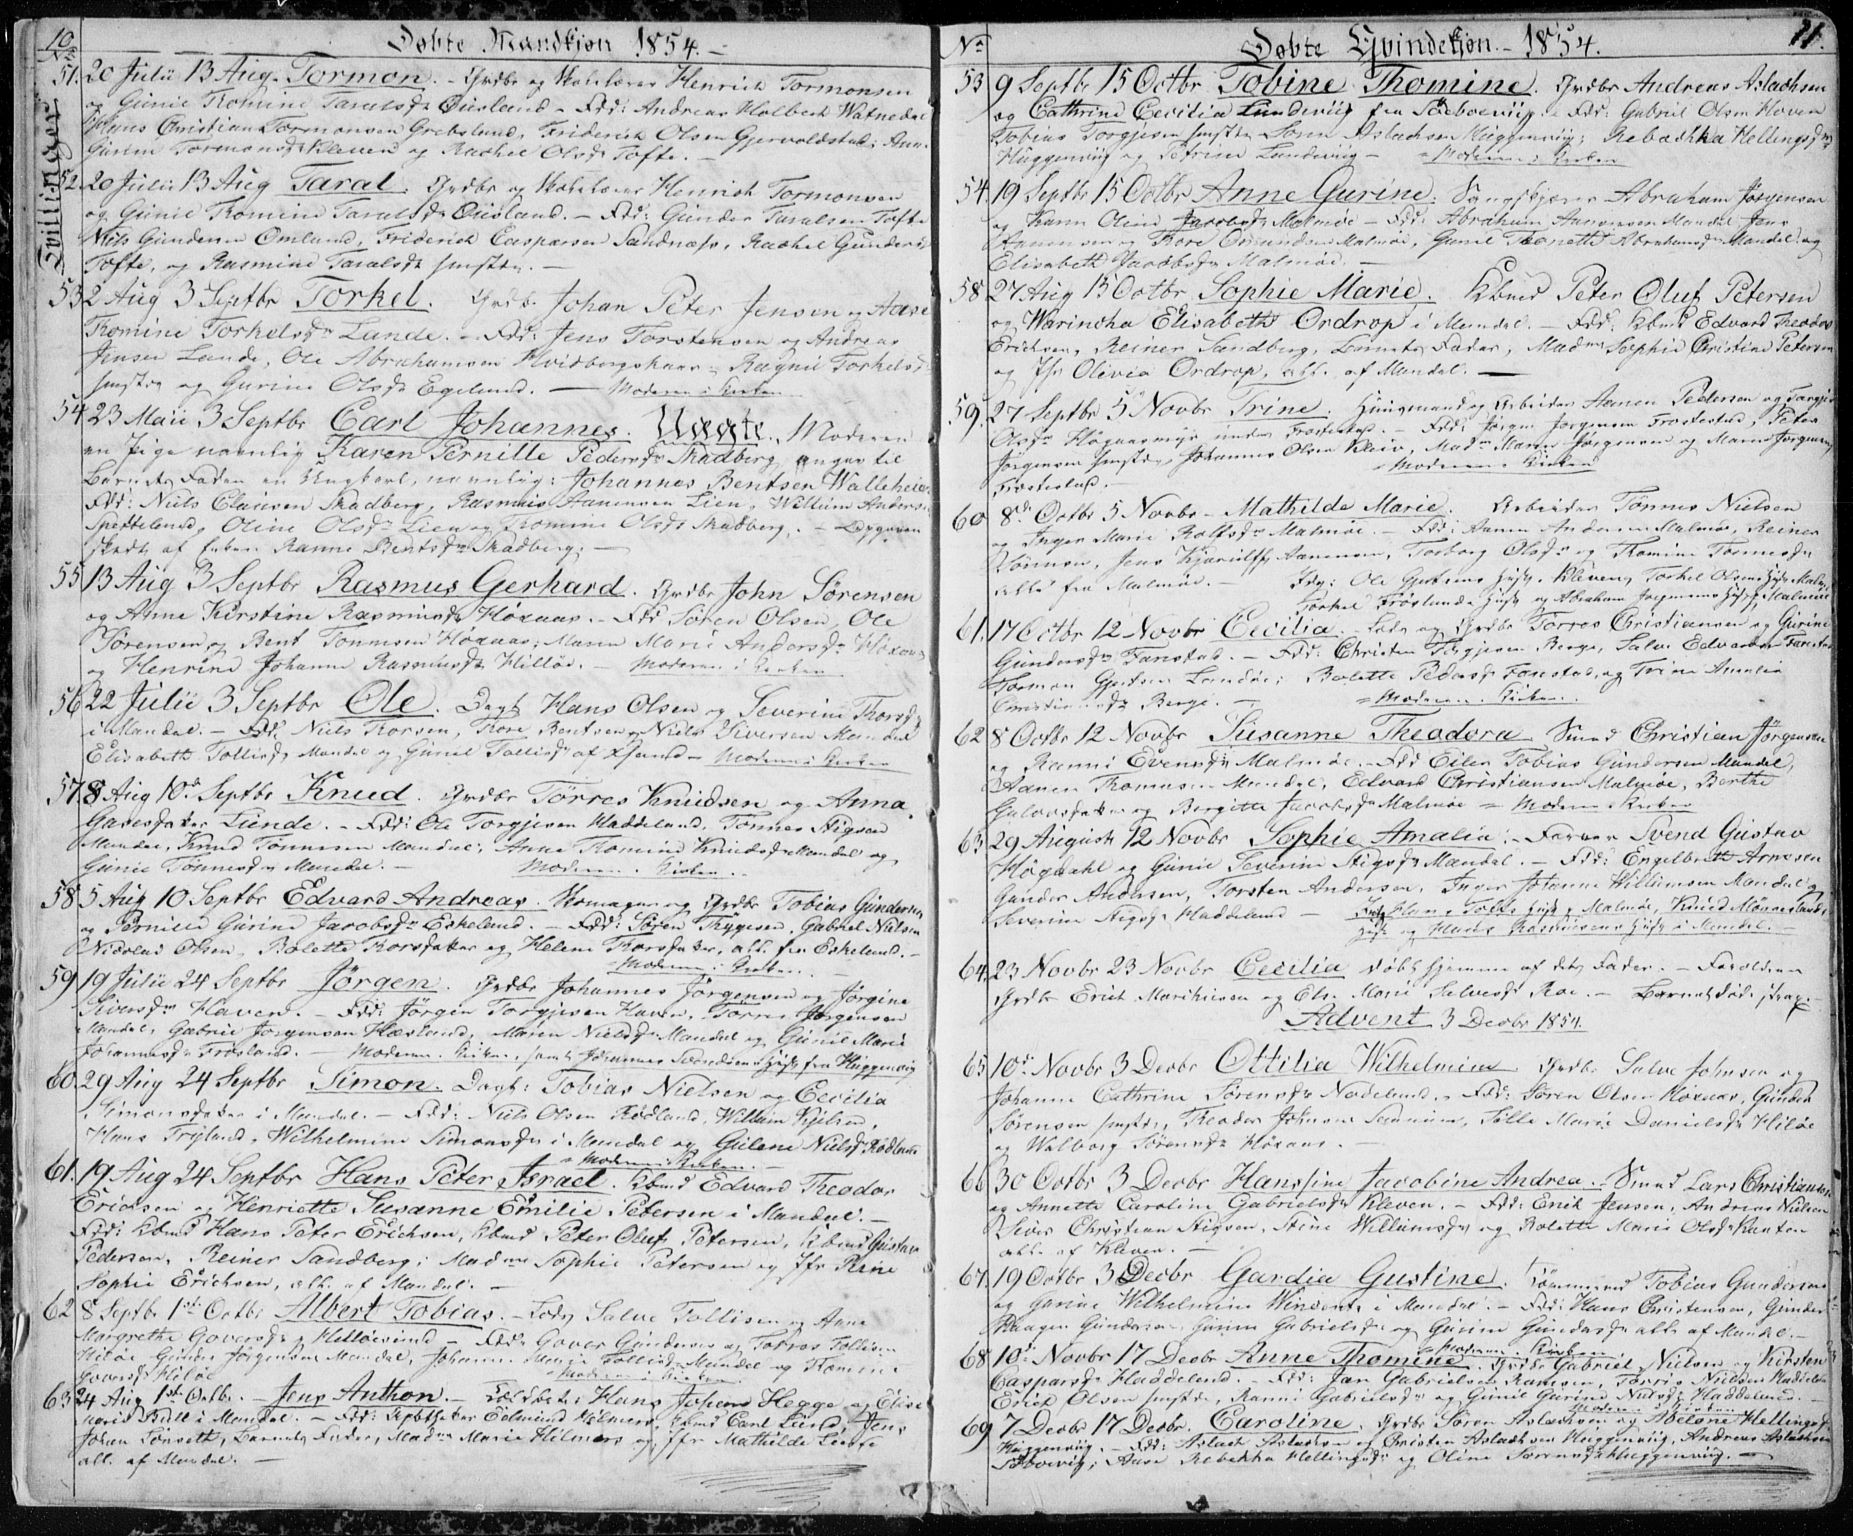 10
Døbte Mandkjøn 1854. –
No
Tvillinger
51. 20 Julii 13 Aug. Tormon. – Grdbr og Skolelærer Henrich Tormonsen
og Gunil Thomine Taralsdr Øiesland – Fdd: Andreas Holbech Watnedal
Hans Christian Tormonsen Grebslund, Friderich Olsen Gjervoldstad; Anne
Gurine Tormonsdr Kleven og Rachel Olsdr Tofte. –
52. 20 Julii 13 Aug Taral. Grdbr og Skolelærer Henrich Tormonsen
og Gunil Thomine Taralsdr Øiesland. – Fdd: Gunder Taralsen Tofte
Niels Gundersen Omland, Friderich Caspersen Sandnæss, Rachel Gunders
Tofte, og Rasmine Taralsdr
53 2 Aug 3 Septbr Torkel. Grdb. Johan Peter Jensen og Aase
Thomine Torkelsdr Lande. – Fdd: Jens Torstensen og Andreas
Jensen Lande, Ole Abrahamsen Hvidbergskaar, Ragnil Torkelsdr
og Gurine Olsdr Egeland. – Moderen i Kirken
54 23 Maii 3 Septbr Carl Johannes. Uægte. Moderen
en Pige navnlig Karen Pernille Pedersdr Skadberg, angav til
Barnets Fader en Ungkarl, navnlig: Johannes Bentsen Walleheie
Fdd: Niels Clausen Skadberg, Rasmus Aanensen Lien, Willum Anders
Oline Olsdr Lien og Thomine Olsdr Skadberg. –
af Enken Ranne Bentsdr Skadberg. –
55 13 Aug 3 Septbr Rasmus Gerhard. Grdbr John Sørensen
og Anne Kirstine Rasmusdr Høxaas. – Fdd Søren Olsen, Ole
Sørensen og Bent Tønnesen Høxaas; Maren Marie Andersdr Høxaas
og Henrine Johanne Rasmusdr Hilløe. – Moderen i Kirken
56 22 Julii 3 Septbr Ole. Dagl: Hans Olsen og Severine Thorsdr
i Mandal. – Fdd. Niels Thorsen, Thore Bentsen og Niels Siversen Mandal
Elisabeth Tollisdr Mandal og Gunil Tollisdr af – Moderen i Kirken
57. 8 Aug 10de Septbr Knud. Grdbr Tørres Knudsen og Anna
Lunde. – Fdd: Ole Torgjesen Haddeland, Tønnes Stigsen
Mandal, Knud Tønnesen Mandal; Anne Thomine Knudsdr Mandal og
Gunil Tønnesdr Mandal. – Moderen i Kirken. –
58 5 Aug 10 Septbr Edvard Andreas. Skomager og Grdbr Tobias Gundersen
og Pernille Gurine Jacobsdr Eskeland. – Fdd: Søren Trygesen, Gabriel Nielsen
Nicolai Olsen, Bolette Thorsdatter og Helene Thorsdatter, alle fra Eskeland. –
Moderen i Kirken. –
59 19 Julii 24 Septbr Jørgen. Grdbr Johannes Jørgensen og Jørgine
Siversdr Haven. – Fdd: Jørgen Torgjesen Haven, Tørres Jørgensen
Mandal, Gabriel Jørgensen Hæslund, Maren Nielsdr Mandal og Gunil Marie
Johannesdr Frøsland. – Moderen i Kirken, samt Johannes Svendsens Hust. fra Huggenvig
60. 29 Aug 24 Septbr Simon. Dagl: Tobias Nielsen og Cecilia
Simonsdatter i Mandal. – Fdd: Niels Olsen Rødland, Willum
Hans Frøiland, Wilhelmine Simonsdr i Mandal og Gulene Nielsdr Rødland
Moderen i Kirken. –
61. 19 Aug 24 Septbr Hans Peter Israel. Kbmd Edvard Theodor
Erichsen og Henriette Susanne Emilie Petersen i Mandal. –
Fdd: Kbmd Hans Peter Erichsen, Kbmd Peter Oluf Petersen, Kbmd Gustav
Pedersen, Reiner Sandberg; Madme Sophie Petersen og Jfr Rine
Sophie Erichsen, alle af Mandal. –
62 8 Septbr 1ste Octbr Albert Tobias. – Lods Salve Tollisen og Anne
Margrethe Goversdr Helløesund – Fdd: Gover Gundersen og Tørres Tollisen
Hilløe, Gunder Jørgensen Mandal, Johanne Marie Tollisdr Mandal og Thomine
Goversdr Hilløe Moderen i Kirken
63 24 Aug 1ste Octbr. – Jens Anthon. – Hans Johan Hegge og Elise
Marie Bull i Mandal. – Fdd: Apotheker Edmund Hilmers, Kbmd Carl Lund, Jens
Johan Tønseth, Barnets Fader, Madme Marie Hilmers og Jfr Mathilde Leisse
alle af Mandal. –
No
Døbte Qvindekjøn. – 1854.
11.
53 9 Septbr 15 Octbr Tobine Thomine. Grdbr Andreas Aslachsen
og Cathrine Cecilia Lundeviig fra Søebøeviig. – Fdd: Gabriel Olsen Hoven
Tobias Torgjesen Søren Aslachsen Huggenviig; Rebackka Hellingsdr
Huggenviig og Petrine Lundeviig – Moderen i Kirken
54. 19 Septbr 15 Octbr Anne Gurine. Abraham Jørgensen
og Karen Oline Jacobsdr Malmøe – Fdd: Abraham Aanensen Mandal, Jens
Aanensen og Thore Malmøe, Gunil Tonette Abrahamsdr Mandal og
Elisabeth Jacobsdr Malmøe. –
58 27 Aug 15 Octbr Sophie Marie. Kbmd Peter Oluf Petersen
og Warincha Elisabeth Ordrop i Mandal. – Fdd: Kbmd Edvard Theodor
Erichsen, Reiner Sandberg, Barnets Fader, Madme Sophie Christine Petersen
og Jfr Olivia Ordrop, alle af Mandal. –
59. 27 Septbr 5 Novbr Trine. Huusmand og Arbeider Aanen Pedersen og Torgine
Olsdr Høgaasmyr under Frøstestad. – Fdd: Jørgen Jørgensen Frøstestad, Peter
Jørgensen Johannes Olsen Kleiv, Madme Maren Jørgensen og Maren Jørgensdr
Frøstestad. – Moderen i Kirken
60 8de Octbr 5 Novbr – Mathilde Marie. Arbeider Tønnes Nielsen
og Inger Marie Rolfsdr Malmøe. – Fdd: Aanen Andersen Malmøe, Reiner
Jens Aanensen, Torborg Olsdr og Thomine Tønnesdr
alle fra Malmøe. – Indg: Ole Gjertsens Hust. Kleven, Torkel Olsens Hust. Malmøe
Torkel Frøslunds Hust og Abraham Jørgensens Hust. Malmøe
61. 17 Octbr 12 Novbr Cecilia. Lods og Grdbr Tørres Christiansen og Gurine
Gundersdr Farestad. – Fdd: Christen Torgjesen Berge, Salve Edvardsen Farestad
Tormon Gjertsen Landøe; Bolette Pedersdr Farestad, og Trine Amalia
Christiansdr Berge. – Moderen i Kirken. –
62 8 Octbr 12 Novbr Susanne Theodora – Smed Christian Jørgensen
og Ranni Evensdr Malmøe. – Fdd Eilert Tobias Gundersen Mandal,
Aanen Thomesen Mandal, Edvard Christiansen Malmøe, Berthe
og Bergitte Jacobsdr Malmøe – Moderen i Kirken
63 29 August 12 Novbr Sophie Amalia. – Farver Svend Gustav
Høgdahl og Gunil Severine Stigsdr Mandal. – Fdd: Engelbreth Arnesen
Gunder Andersen, Torsten Andersen, Inger Johanne Willumsen Mandal og
Severine Stigsdr Haddeland – Hans Tofts Hust. Malmøe, Knud Mønneslands
Hust og Hans Rasmussens Hust i Mandal. –
64. 23 Novbr 23 Novbr Cecilia døbt hjemme af dets Fader. – Forældrene
Grdbr Erich Marchusen og Else Marie Salvesdr Roe. – Barnet døde strax. –
Advent 3 Decbr 1854.
65 10de Novbr 3 Decbr Ottilia Wilhelmine Grdbr Salve Johnsen og
Johanne Cathrine Sørensdr Nodeland. – Fdd: Søren Olsen Høxaas, Gunder
Sørensen Theodor Johnsen Tølle Marie Danielsdr Hiløe
og Walborg Sørensdr Høxaas –
66 30 Octbr 3 Decbr Hansine Jacobine Andrea. – Smed Lars Christiansen
og Annette Caroline Gabrielsdr Kleven. – Fdd: Erich Jensen, Andreas Nielsen
Siver Christian Stigsen, Stine Willumsdr og Bolette Marie Olsdr
alle af Kleven. –
67. 19 Octbr 3 Decbr Gardia Gustine. Tømmermand Tobias Gundersen
og Gurine Wilhelmine Winsents i Mandal. – Fdd: Hans Christensen, Gunder
Haagen Gundersen, Gunil Gabrielsdr og Gurine Gundersdr alle af Mandal. –
Moderen i Kirken
68 10de Novbr 17 Decbr Anne Thomine. Grdbr Gabriel Nielsen og Kirsten
Caspersdr Haddeland. – Fdd: Jan Gabrielsen Ramsøe, Tørris Nielsen Haddeland
Erich Olsen Ranni Gabrielsdr og Gunil Gurine Nielsdr Haddeland. –
Moderen i Kirken
69 7 Decbr 17 Decbr. Caroline. Grdbr Søren Aslachsen og Abelone Hellingsdr
Huggenviig. – Fdd: Aslach Aslachsen og Christen Aslachsen Huggenviig, Andreas Aslachsen
Søbøevig; Aase Rebekka Hellingsdr og Oline Sørensdr Huggenviig. –